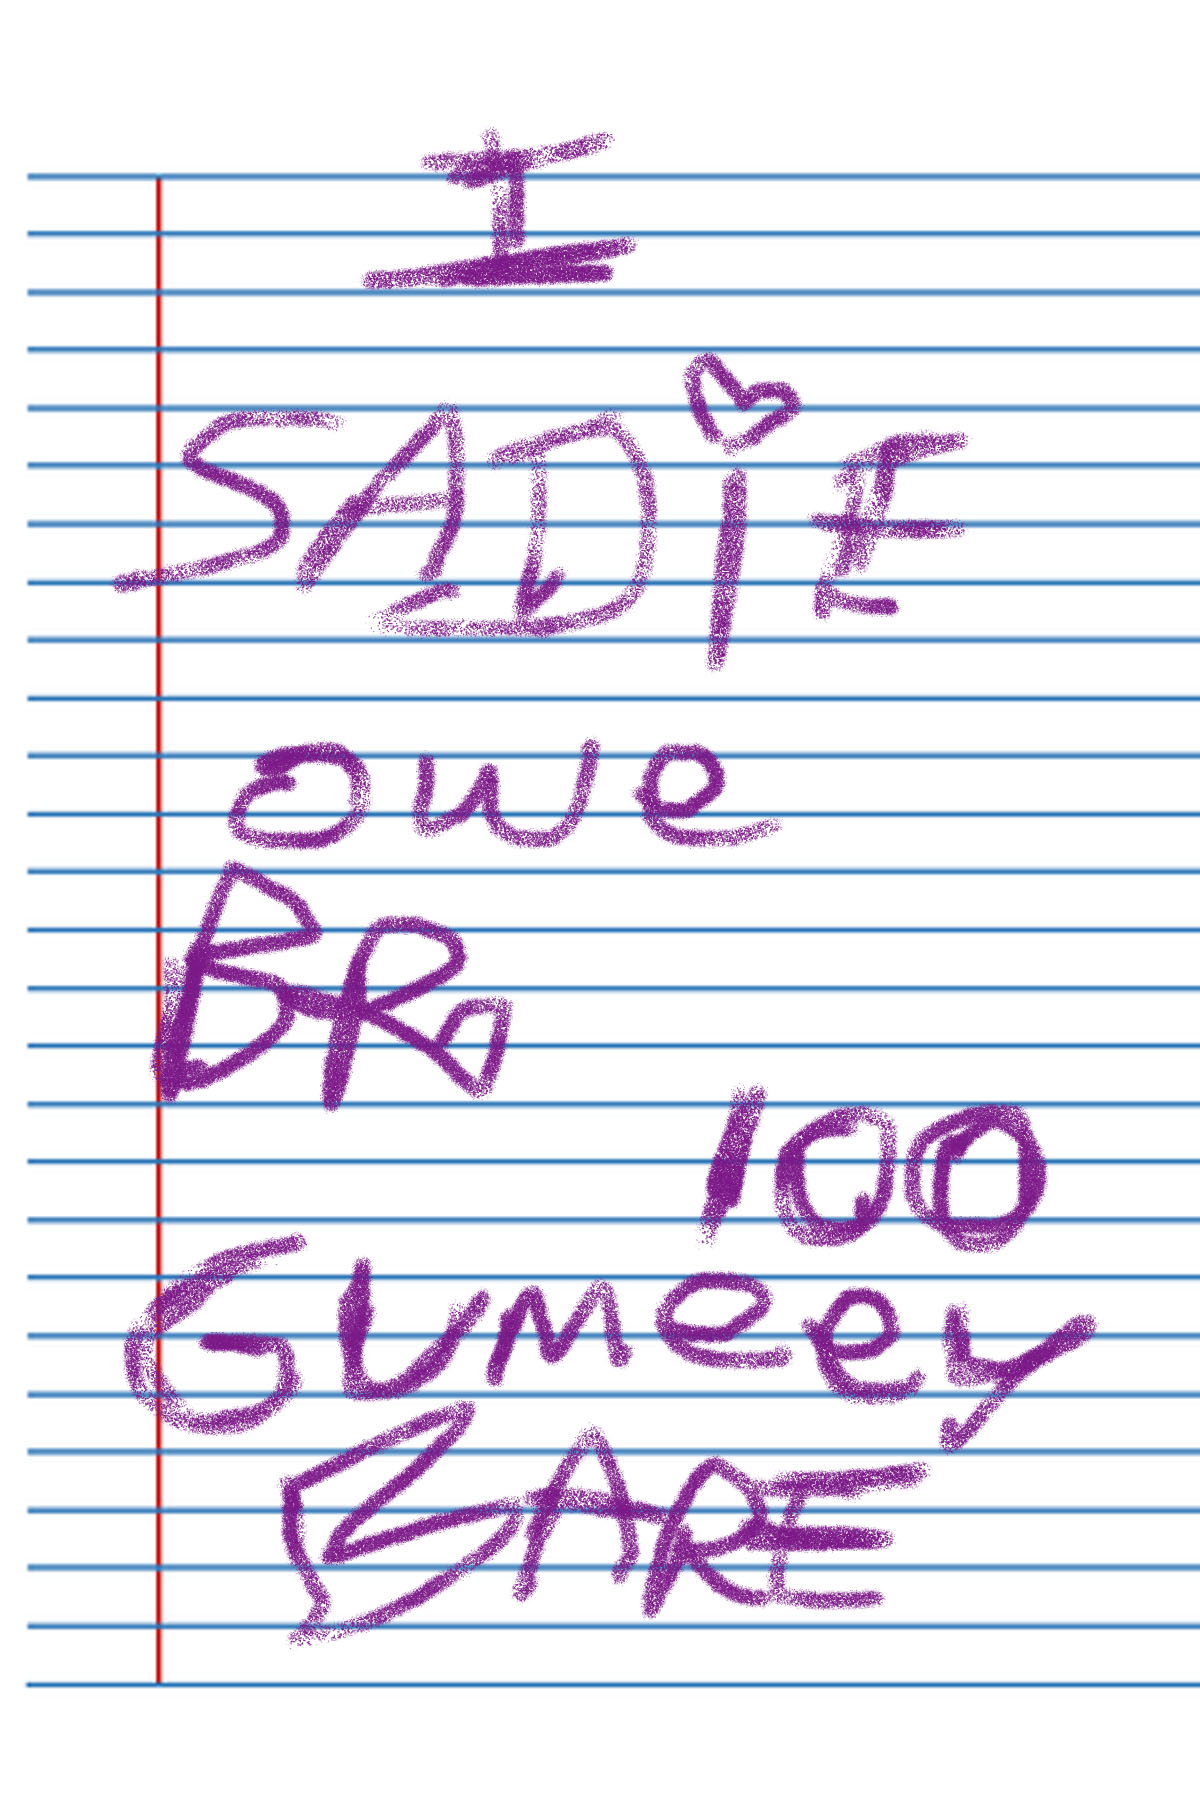 I
SADiE
owe
BRO
100
GUMeey
BARE